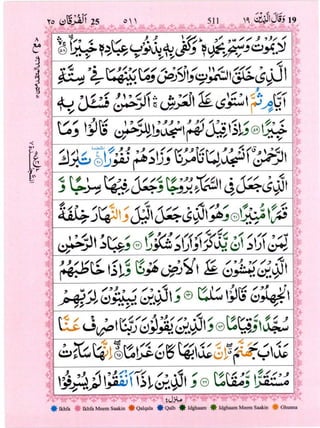 اَلْفُرْقَان ٢٥ 25 ٥١١ 511 وَقَالَ الَّذِيْنَ ١٩ 19
لَا يَمُوْتُ وَسَبِّحْ بِحَمْدِهٖ ؕ وَكَفٰى بِهٖ بِذُنُوْبِ عِبَادِهٖ خَبِيْرًا ۟ۙ
الَّذِيْ خَلَقَ السَّمٰوٰتِ وَالْاَرْضَ وَمَا بَيْنَهُمَا فِيْ سِتَّةِ
اَيَّامٍ ثُمَّ اسْتَوٰى عَلَى الْعَرْشِ ۛۚ اَلرَّحْمٰنُ فَسْـَٔلْ بِهٖ
خَبِيْرًا ۟ وَاِذَا قِيْلَ لَهُمُ اسْجُدُوْا لِلرَّحْمٰنِ قَالُوْا وَمَا
الرَّحْمٰنُ ۗ اَنَسْجُدُ لِمَا تَاْمُرُنَا وَزَادَهُمْ نُفُوْرًا ۟ تَبٰرَكَ
الَّذِيْ جَعَلَ فِي السَّمَآءِ بُرُوْجًا وَّجَعَلَ فِيْهَا سِرٰجًا وَّ
قَمَرًا مُّنِيْرًا ۟ وَهُوَ الَّذِيْ جَعَلَ الَّيْلَ وَالنَّهَارَ خِلْفَةً
لِّمَنْ اَرَادَ اَنْ يَّذَّكَّرَ اَوْ اَرَادَ شُكُوْرًا ۟ وَعِبَادُ الرَّحْمٰنِ
الَّذِيْنَ يَمْشُوْنَ عَلَى الْاَرْضِ هَوْنًا وَّاِذَا خَاطَبَهُمُ
الْجٰهِلُوْنَ قَالُوْا سَلٰمًا ۟ وَالَّذِيْنَ يَبِيْتُوْنَ لِرَبِّهِمْ
سُجَّدًا وَّقِيَامًا ۟ وَالَّذِيْنَ يَقُوْلُوْنَ رَبَّنَا اصْرِفْ عَنَّا
عَذَابَ جَهَنَّمَ ۖ اِنَّ عَذَابَهَا كَانَ غَرَامًا ۟ اِنَّهَا سَآءَتْ
مُسْتَقَرًّا وَّمُقَامًا ۟ وَالَّذِيْنَ اِذَآ اَنْفَقُوْا لَمْ يُسْرِفُوْا
منزل ٤
Ikhfa Ikhfa Meem Saakin Qalqala Qalb Idghaam Idghaam Meem Saakin Ghunna